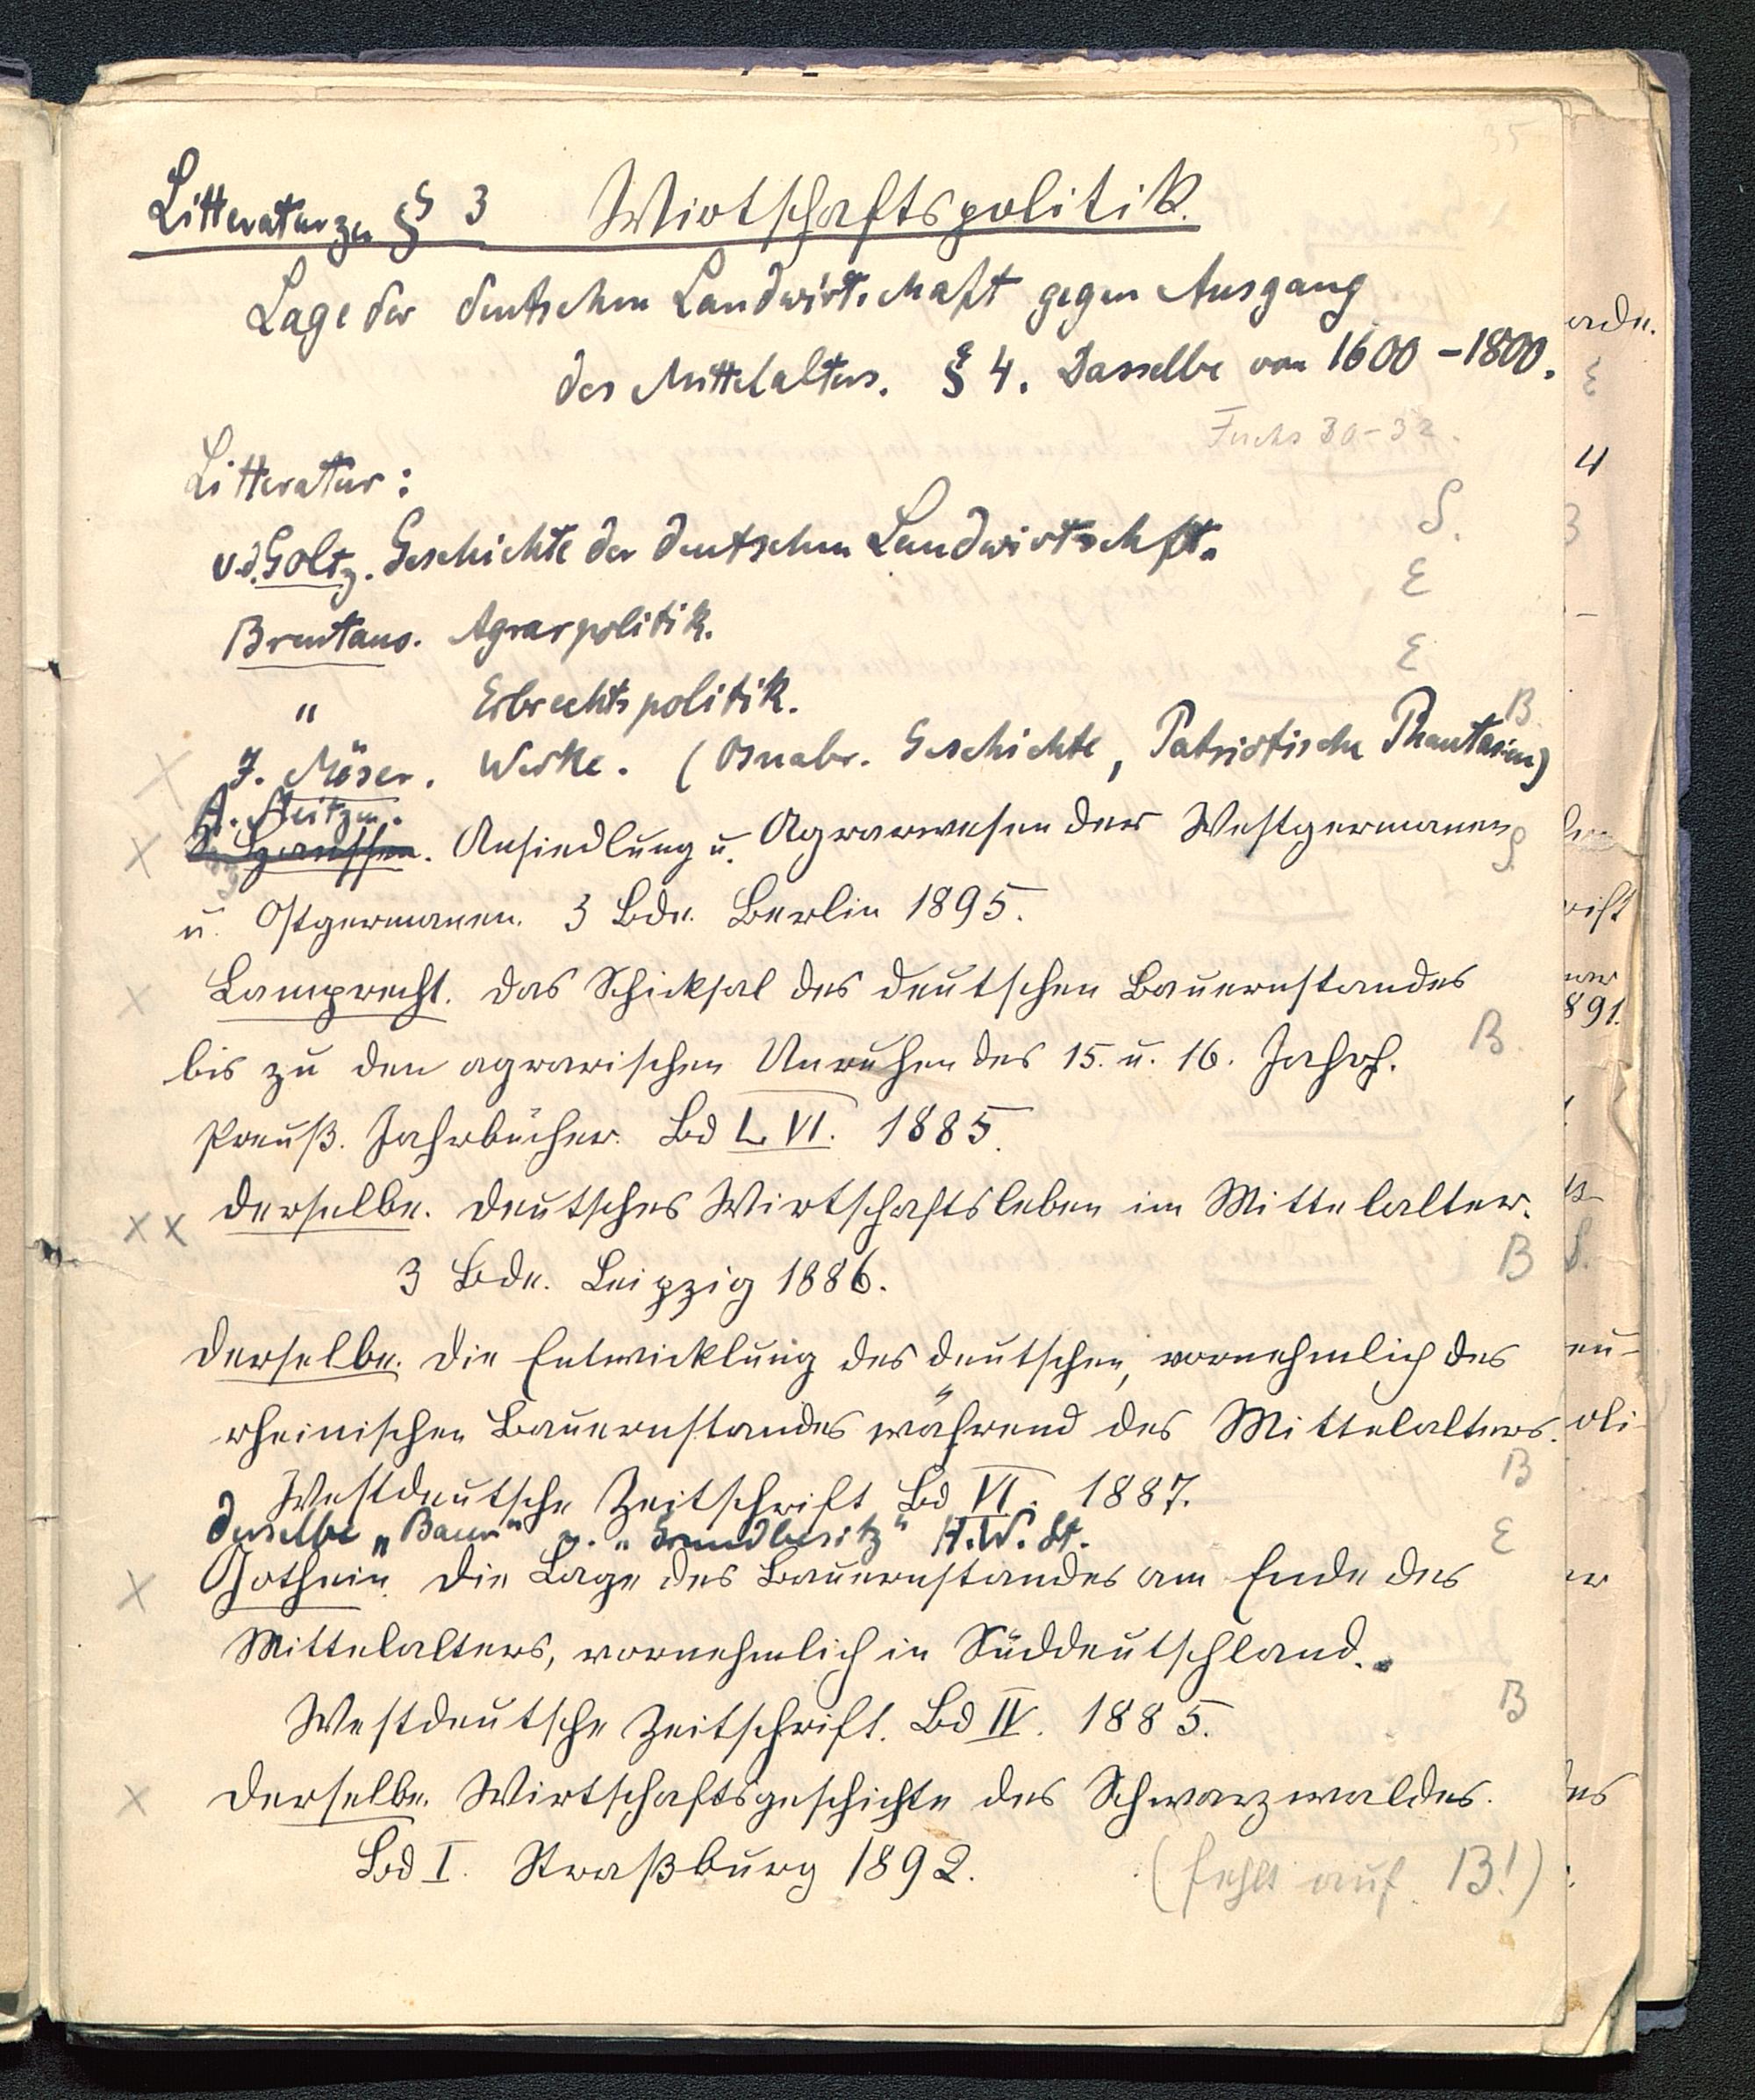 35
Litteratur zu § 3 Wirtschaftspolitik.
Lage der deutschen Landwirtschaft gegen Ausgang
des Mittelalters. § 4. Dasselbe von 1600-1800.
Fuchs 30-32.
Litteratur:
S.
v.d.Goltz. Geschichte der deutschen Landwirtschft.
E
Brentano. Agrarpolitik.
E
" Erbrechtspolitik.
B.
X J. Möser. Werke. (Osnabr. Geschichte, Patriotische Phantasien)
A. Meitzen.
X Hanssen. Ansiedlung u. Agrarwesen der Westgermanen S.
u. Ostgermanen. 3 Bde. Berlin 1895.
X Lamprecht. Das Schicksal des deutschen Bauernstandes
bis zu den agrarischen Unruhen des 15. u. 16. Jahrh. B.
Preuß. Jahrbücher. Bd LVI. 1885.
XX Derselbe. Deutsches Wirtschaftsleben im Mittelalter.
3 Bde. Leipzig 1886. B
Derselbe. Die Entwicklung des deutschen, vornehmlich des
rheinischen Bauernstandes während des Mittelalters.
Westdeutsche Zeitschrift Bd VI. 1887. B
Derselbe "Bauer" u. "Grundbesitz" H.W.St. E
X Gothein. Die Lage des Bauernstandes am Ende des
Mittelalters, vornehmlich in Süddeutschland.
Westdeutsche Zeitschrift. Bd IV. 1885. B
X Derselbe. Wirtschaftsgeschichte des Schwarzwaldes.
Bd I. Straßburg 1892. (fehlt auf B!)